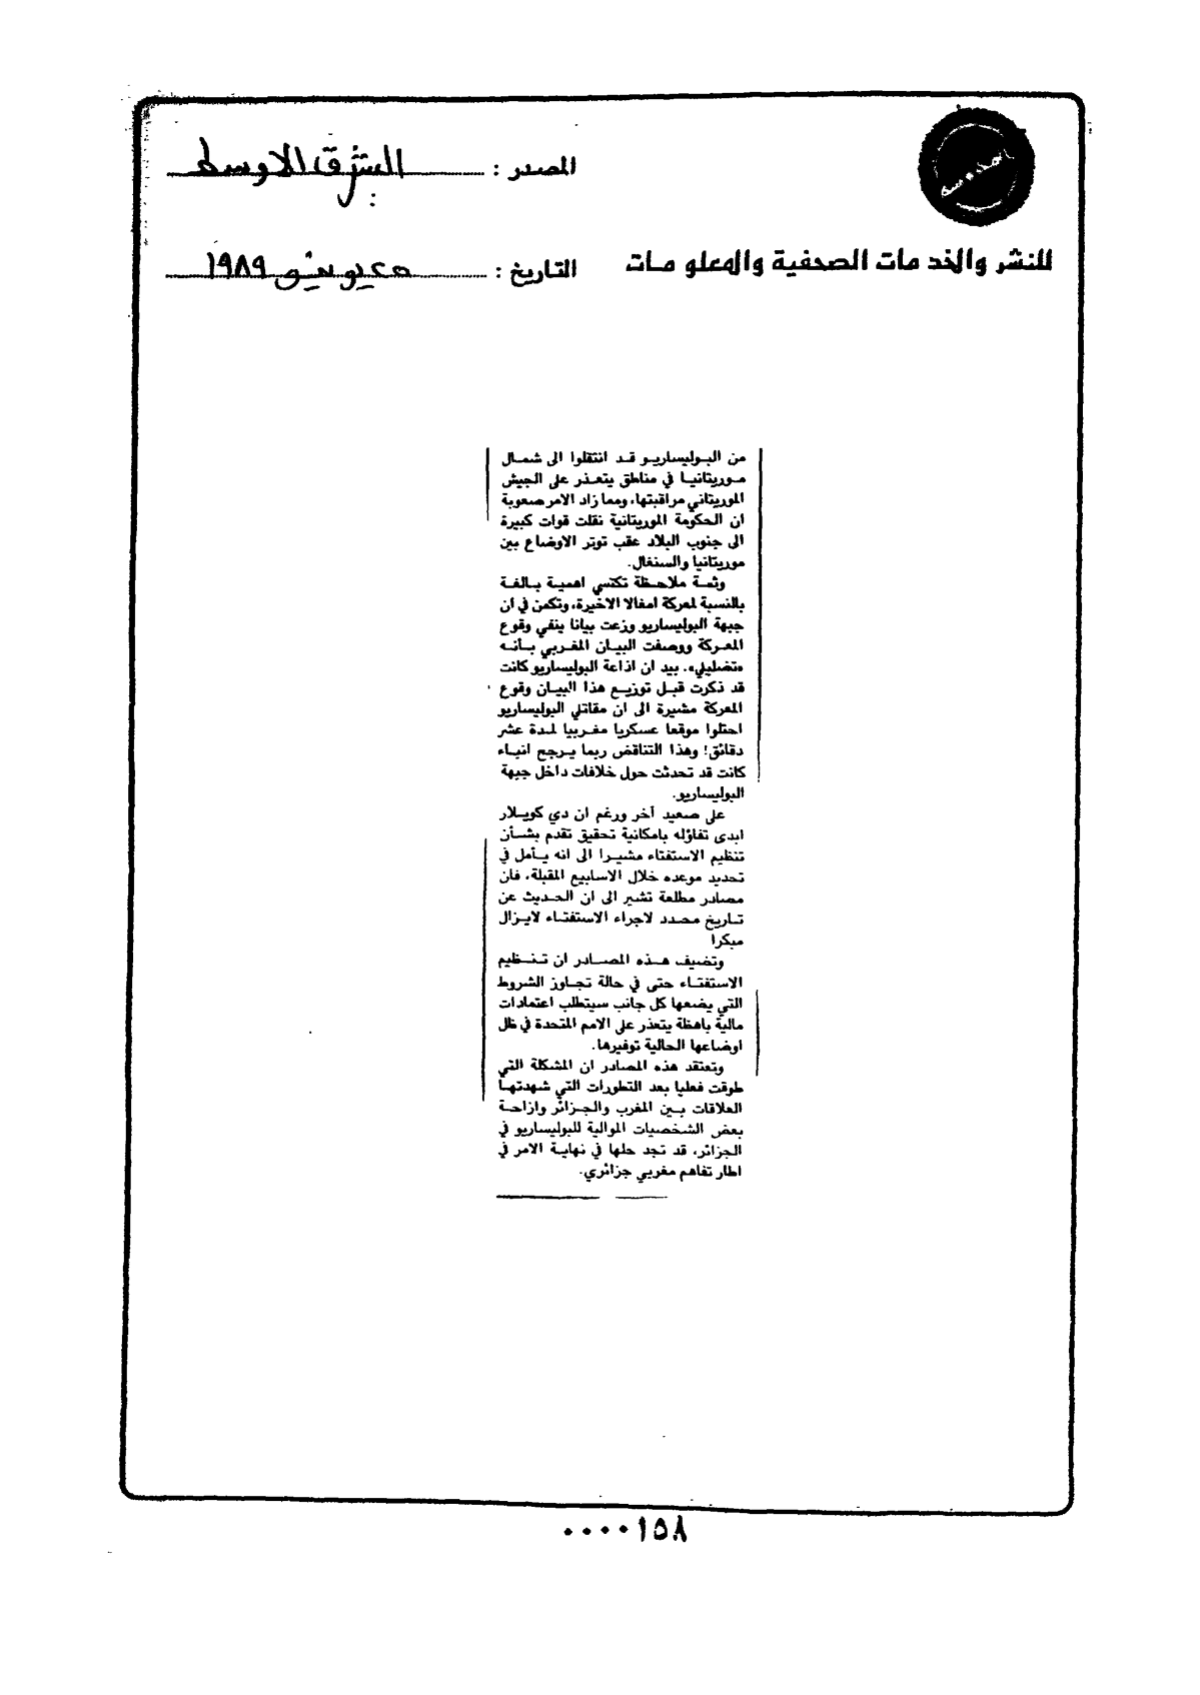 المصدر : الشرق الاوسط
للنشر والخدمات الصحفية والمعلومات
التاريخ : ٢٥ يونيو ١٩٨٩
من البوليساريو قد انتقلوا الى شمال
موريتانيا في مناطق يتعذر على الجيش
الموريتاني مراقبتها، ومما زاد الامر صعوبة
ان الحكومة الموريتانية نقلت قوات كبيرة
الى جنوب البلاد عقب توتر الاوضاع بين
موريتانيا والسنغال.
وثمة ملاحظة تكتسي اهمية بالغة
بالنسبة لمعركة امغالا الاخيرة، وتكمن في ان
جبهة البوليساريو وزعت بيانا ينفي وقوع
المعركة ووصفت البيان المغربي بأنه
«تضليلي». بيد ان اذاعة البوليساريو كانت
قد ذكرت قبل توزيع هذا البيان وقوع
المعركة مشيرة الى ان مقاتلي البوليساريو
احتلوا موقعا عسكريا مغربيا لمدة عشر
دقائق! وهذا التناقض ربما يرجح انباء
كانت قد تحدثت حول خلافات داخل جبهة
البوليساريو.
على صعيد آخر ورغم ان دي كويلار
ابدى تفاؤله بامكانية تحقيق تقدم بشأن
تنظيم الاستفتاء مشيرا الى انه يأمل في
تحديد موعده خلال الاسابيع المقبلة، فان
مصادر مطلعة تشير الى ان الحديث عن
تاريخ محدد لاجراء الاستفتاء لايزال
مبكرا
وتضيف هذه المصادر ان تنظيم
الاستفتاء حتى في حالة تجاوز الشروط
التي يضعها كل جانب سيتطلب اعتمادات
مالية باهظة يتعذر على الامم المتحدة في ظل
اوضاعها الحالية توفيرها.
وتعتقد هذه المصادر ان المشكلة التي
طوقت فعليا بعد التطورات التي شهدتها
العلاقات بين المغرب والجزائر وازاحة
بعض الشخصيات الموالية للبوليساريو في
الجزائر، قد تجد حلها في نهاية الامر في
اطار تفاهم مغربي جزائري.
٠٠٠٠١٥٨